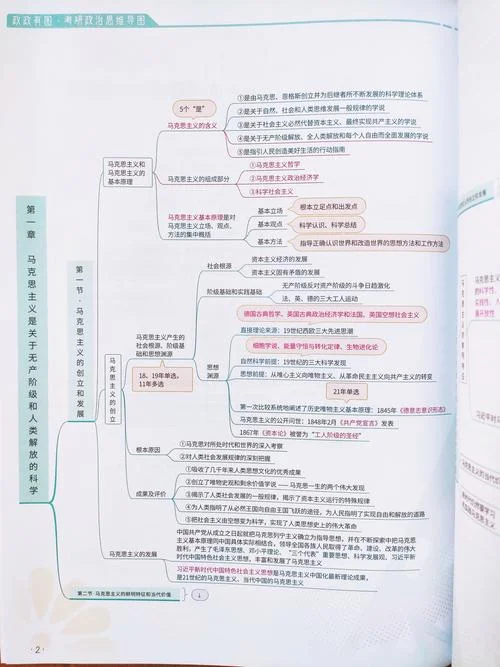 政政有图·考研政治思维导图
第一章 马克思主义是关于无产阶级和人类解放的科学
第一节·马克思主义的创立和发展
马克思主义和
马克思主义的
基本原理
5个“是”
马克思主义的含义
①是由马克思、恩格斯创立并为后继者所不断发展的科学理论体系
②是关于自然、社会和人类思维发展一般规律的学说
③是关于社会主义必然代替资本主义、最终实现共产主义的学说
④是关于无产阶级解放、全人类解放和每个人自由而全面发展的学说
⑤是指引人民创造美好生活的行动指南
马克思主义的组成部分
①马克思主义哲学
②马克思主义政治经济学
③科学社会主义
马克思主义基本原理是对
马克思主义立场、观点、
方法的集中概括
基本立场
根本立足点和出发点
基本观点
科学认识、科学总结
基本方法
指导正确认识世界和改造世界的思想方法和工作方法
马克思主义的创立
马克思主义产生的
社会根源、阶级基
础和思想渊源
18、19年单选,
11年多选
社会根源
资本主义经济的发展
资本主义固有矛盾的发展
阶级基础和实践基础
无产阶级反对资产阶级的斗争日趋激化
法、英、德的三大工人运动
思想渊源
德国古典哲学、英国古典政治经济学和法国、英国空想社会主义
直接理论来源:19世纪西欧三大先进思潮
细胞学说、能量守恒与转化定律、生物进化论
自然科学前提:19世纪的三大科学发现
思想前提:从唯心主义向唯物主义、从革命民主主义向共产主义的转变
21年单选
第一次比较系统地阐述了历史唯物主义基本原理:1845年《德意志意识形态》
马克思主义的公开问世:1848年2月《共产党宣言》发表
1867年《资本论》被誉为“工人阶级的圣经”
根本原因
①马克思对所处时代和世界的深入考察
②对人类社会发展规律的深刻把握
成果及评价
①吸收了几千年来人类思想文化的优秀成果
②创立了唯物史观和剩余价值学说——马克思一生的两个伟大发现
③揭示了人类社会发展的一般规律,揭示了资本主义运行的特殊规律
④为人类指明了从必然王国向自由王国飞跃的途径,为人民指明了实现自由和解放的道路
⑤把社会主义由空想变为科学,实现了人类思想史上的伟大革命
马克思主义的发展
中国共产党从成立之日起就把马克思列宁主义确立为指导思想,并在不断探索中把马克思
主义基本原理同中国具体实际相结合,领导全国各族人民取得了革命、建设、改革的伟大
胜利,产生了毛泽东思想、邓小平理论、“三个代表”重要思想、科学发展观、习近平新
时代中国特色社会主义思想,丰富和发展了马克思主义
习近平新时代中国特色社会主义思想是马克思主义中国化最新理论成果,
是21世纪的马克思主义、当代中国的马克思主义
第二节·马克思主义的鲜明特征和当代价值
·2·